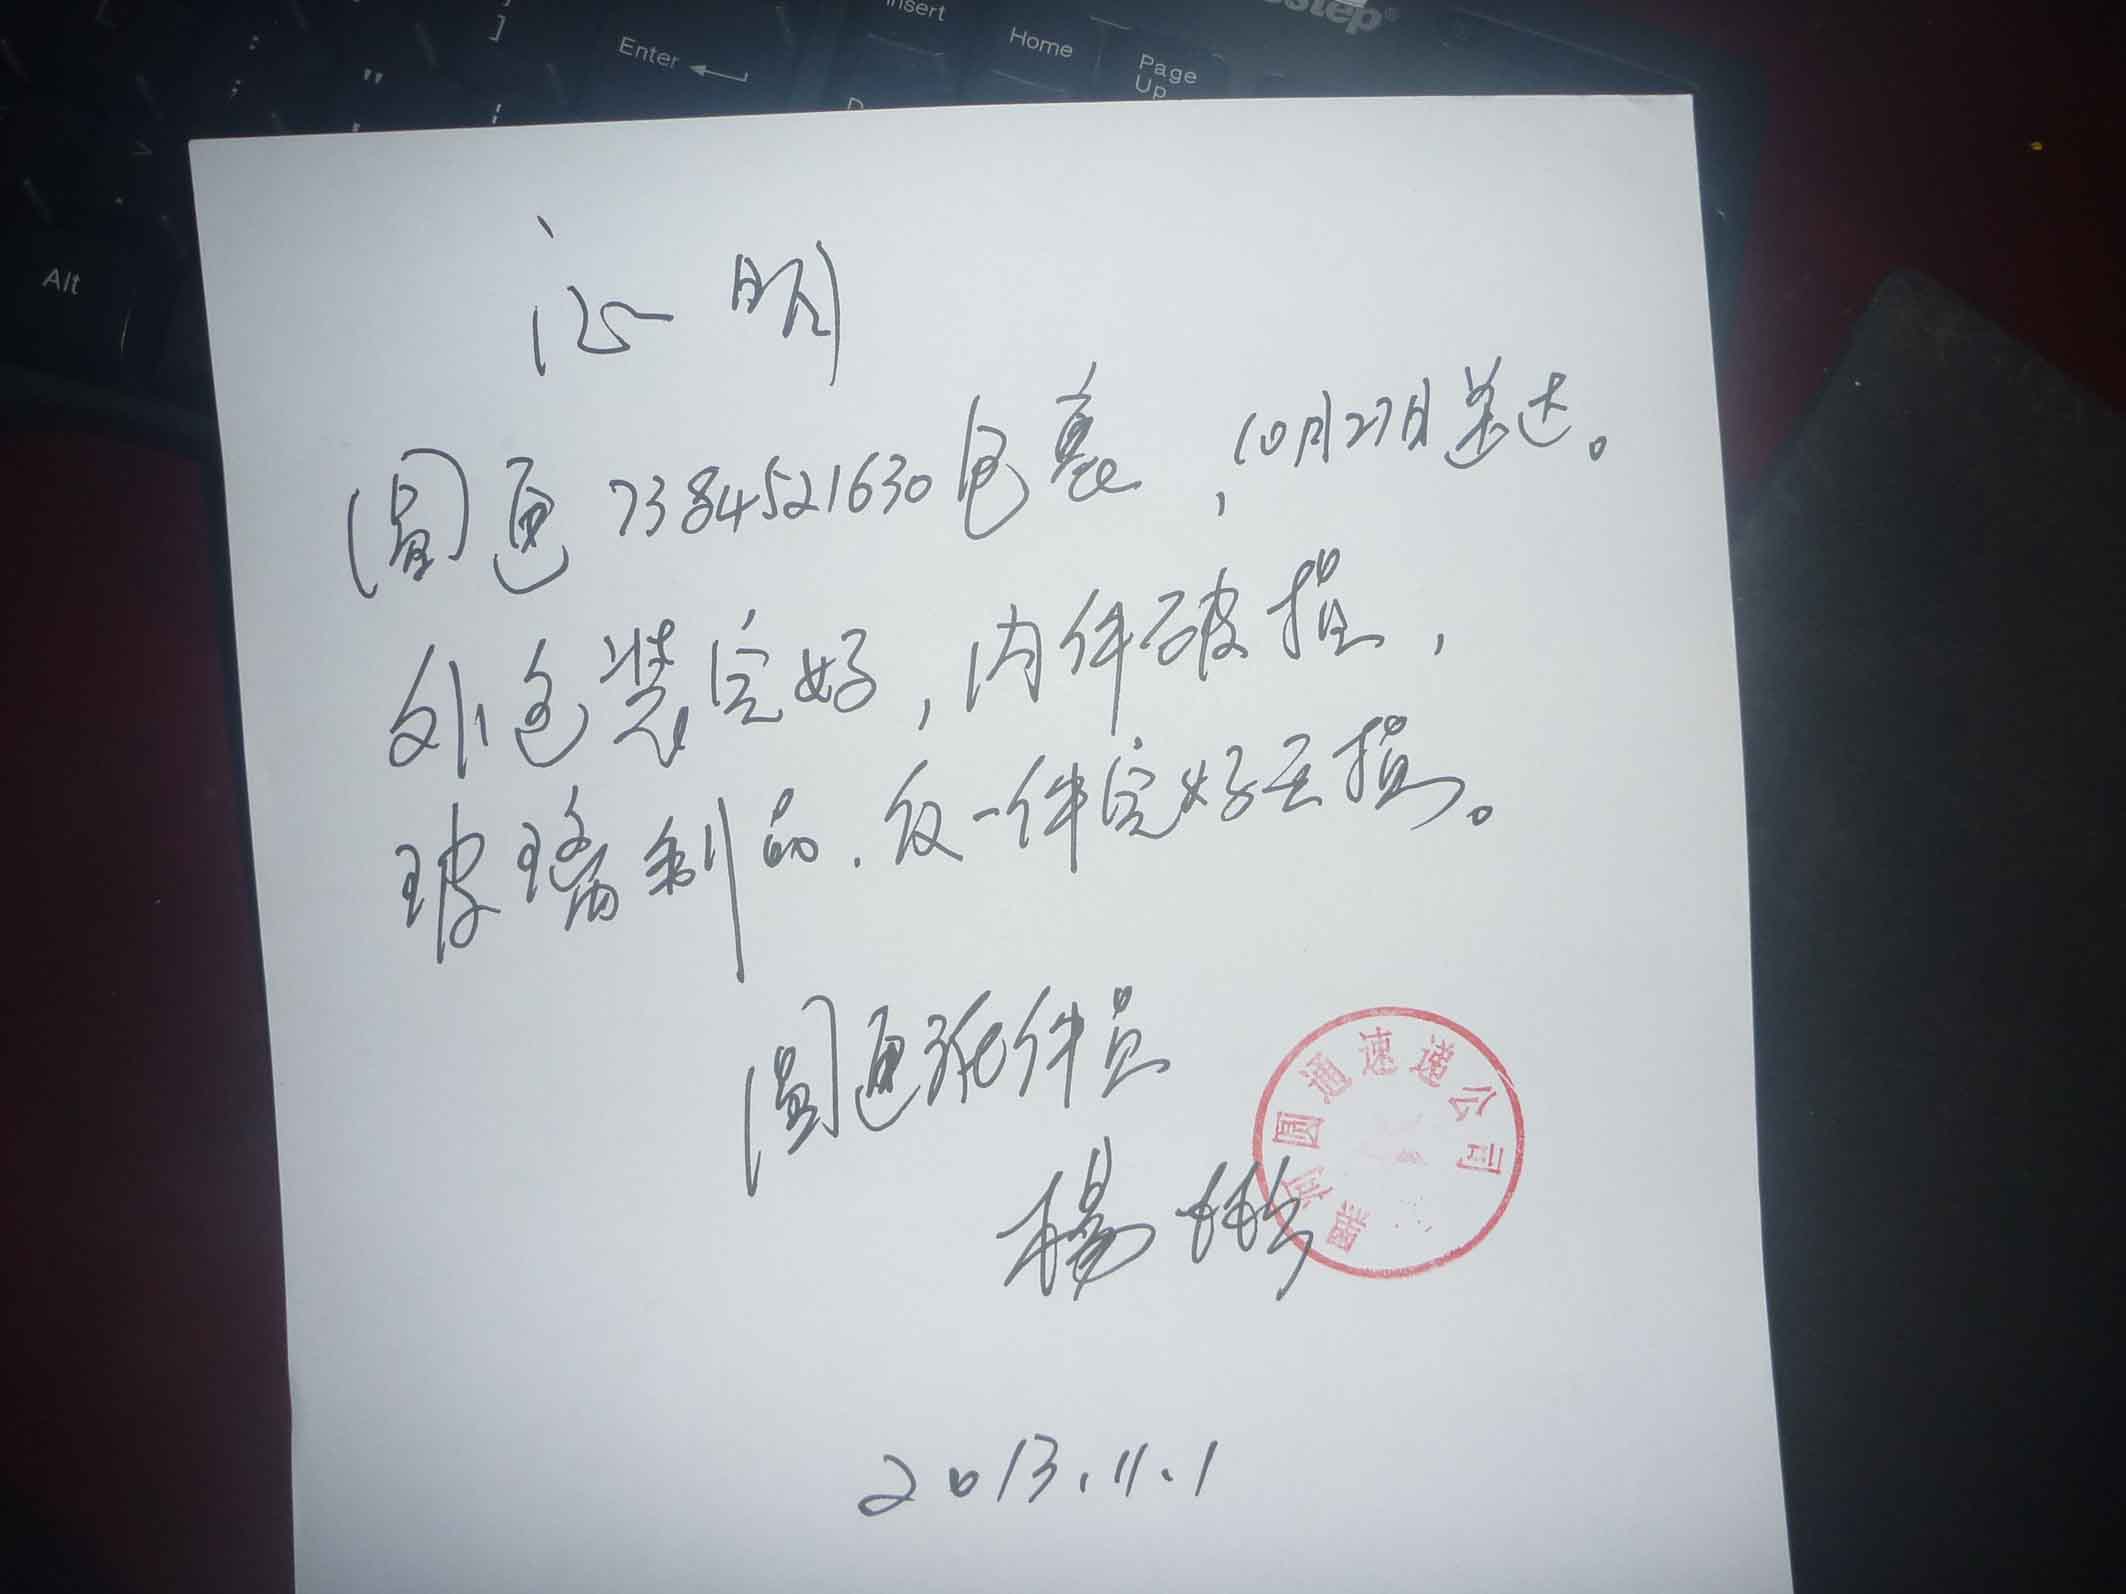 ]
Enter
Insert
Home
Page
Up
Alt
证明
圆通7384521630包裹，10月27日送达。
外包装完好，内件破损，
玻璃制品.仅一件完好无损。
圆通派件员
杨
圆通速递公司
2013.11.1